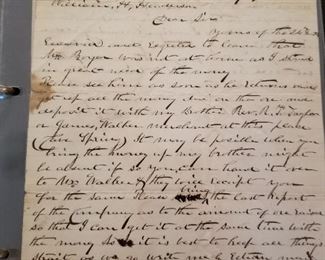 William H. Henderson
Dear Sir
Yours of the
Received and regrets to learn that
Mr Boyer was not at home as I stand
in great need of the money
Please see him as soon as he returns and
get up all the money due on the ore and
deposit it with my Brother Rev. R. F. Taylor
or James Walker merchant at this place
(Olive Spring) It may be possible when you
bring the money up my brother might
be absent if so you can hand it over
to Mr Walker & they will receipt you
for the same Please bring the last Report
of the Company as to the amount of ore raised
so that I can get it at the same time with
the money So it is best to keep all things
strait as we go write me & Return mail